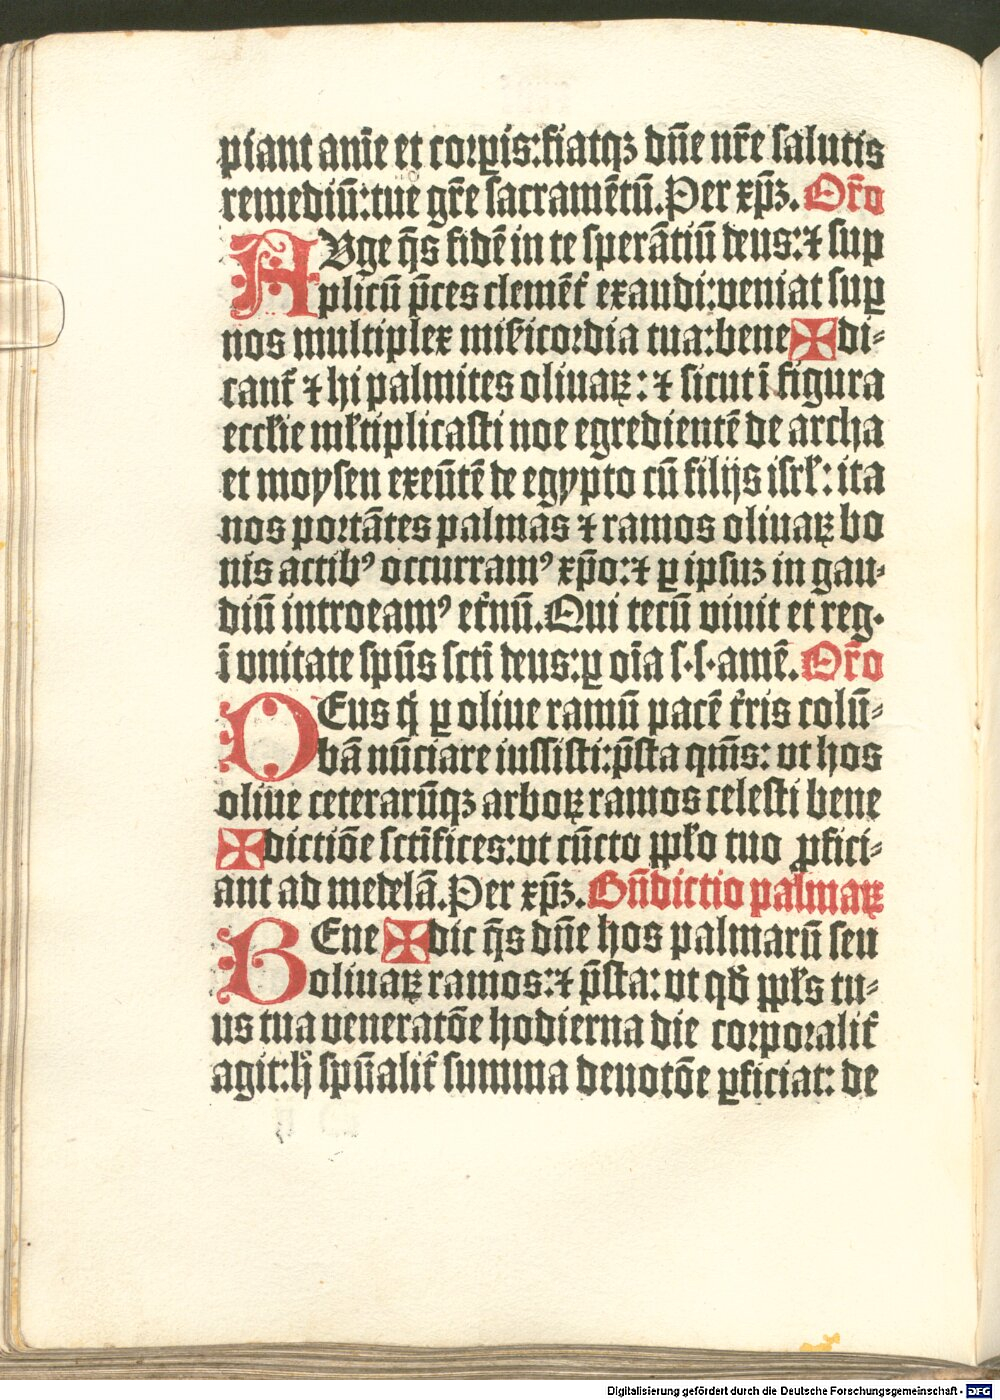 piant anīe et corꝑis:fiatqꝫ dn̄e nr̄e salutis
remediū:tue gr̄e sacramētū.Per xp̄ꝫ. Or̄o
AVge q̄s fidē in te sperātiū deus:⁊ sup
plicū p̄ces clemēt̄ exaudi:veniat suꝑ
nos multiplex mis̄icordia tua:bene✠di⸗
cant̄ ⁊ hi palmites oliuaꝝ:⁊ sicut ī figura
eccl̄ie ml̄tiplicasti noe egredientē de archa
et moysen exeūtē de egypto cū filijs isrl̄: ita
nos portātes palmas ⁊ ramos oliuaꝝ bo
nis actibꝰ occurramꝰ xp̄o:⁊ ꝑ ipsuꝫ in gau⸗
diū introeamꝰ et̄nū.Qui tecū viuit et reg.
ī vnitate spūs sctī deus:ꝑ oīa s.s.amē.Or̄o
DEus q̇ ꝑ oliue ramū pacē t̄ris colū⸗
bā nūciare iussisti:p̄sta qm̄s: vt hos
oliue ceterarūqꝫ arboꝝ ramos celesti bene
✠dictiōe sct̄ifices:vt cūcto ppl̄o tuo ꝓfici⸗
ant ad medelā.Per xp̄ꝫ.Bn̄dictio palmaꝝ
BEne✠dic q̄s dn̄e hos palmarū seu
oliuaꝝ ramos:⁊ p̄sta: vt qd̄ ppl̄s tu⸗
us tua veneratōe hodierna die corporalit̄
agit:h̄ spūalit̄ summa deuotōe ꝑficiat: de
Digitalisierung gefördert durch die Deutsche Forschungsgemeinschaft - DFG